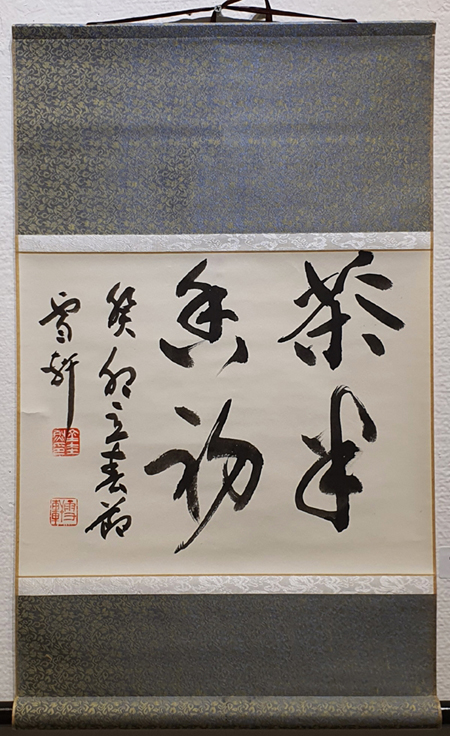 茶半
香初
癸卯立春節
雪軒